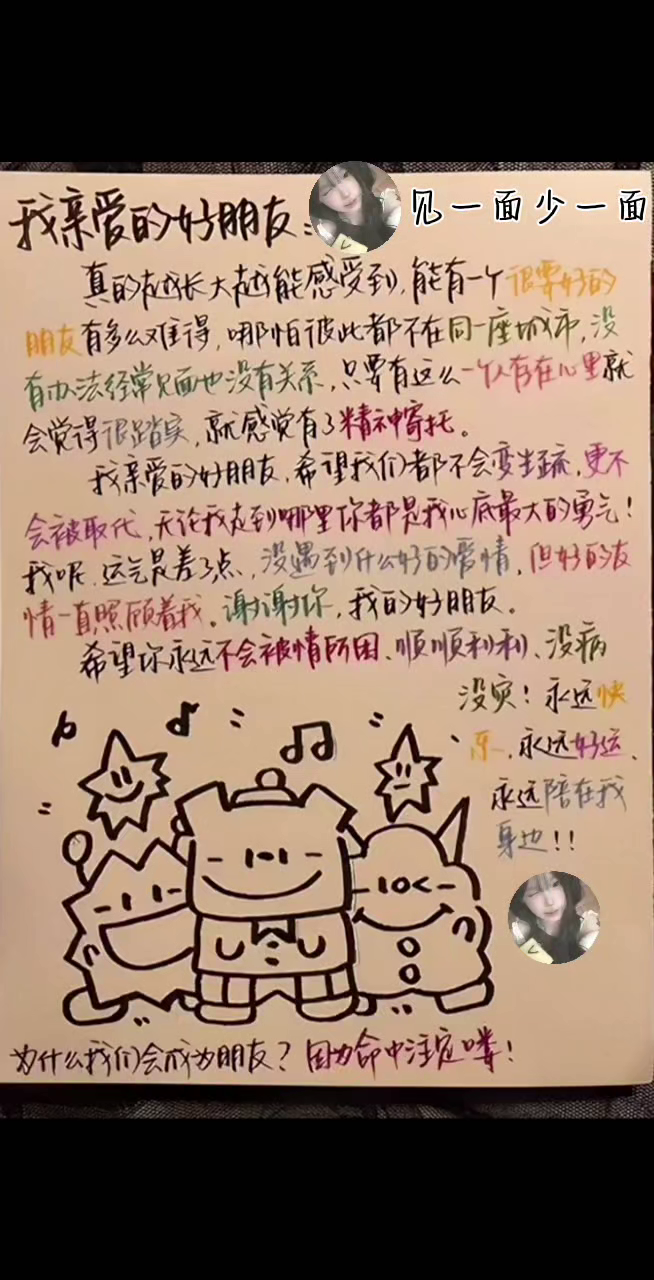 我亲爱的好朋友：
见一面少一面
真的越长大越能感受到,能有一个很要好的
朋友有多么难得,哪怕彼此都不在同一座城市,没
有办法经常见面也没有关系,只要有这么一个人存在心里就
会觉得很踏实,就感觉有了精神寄托。
我亲爱的好朋友,希望我们都不会变生疏,更不
会被取代,无论我走到哪里你都是我心底最大的勇气!
我呢,运气是差了点,没遇到什么好的爱情,但好的友
情一直照顾着我。谢谢你,我的好朋友。
希望你永远不会被情所困、顺顺利利、没病
没灾!永远快
乐、永远好运、
永远陪在我
身边!!
为什么我们会成为朋友?因为命中注定喽!